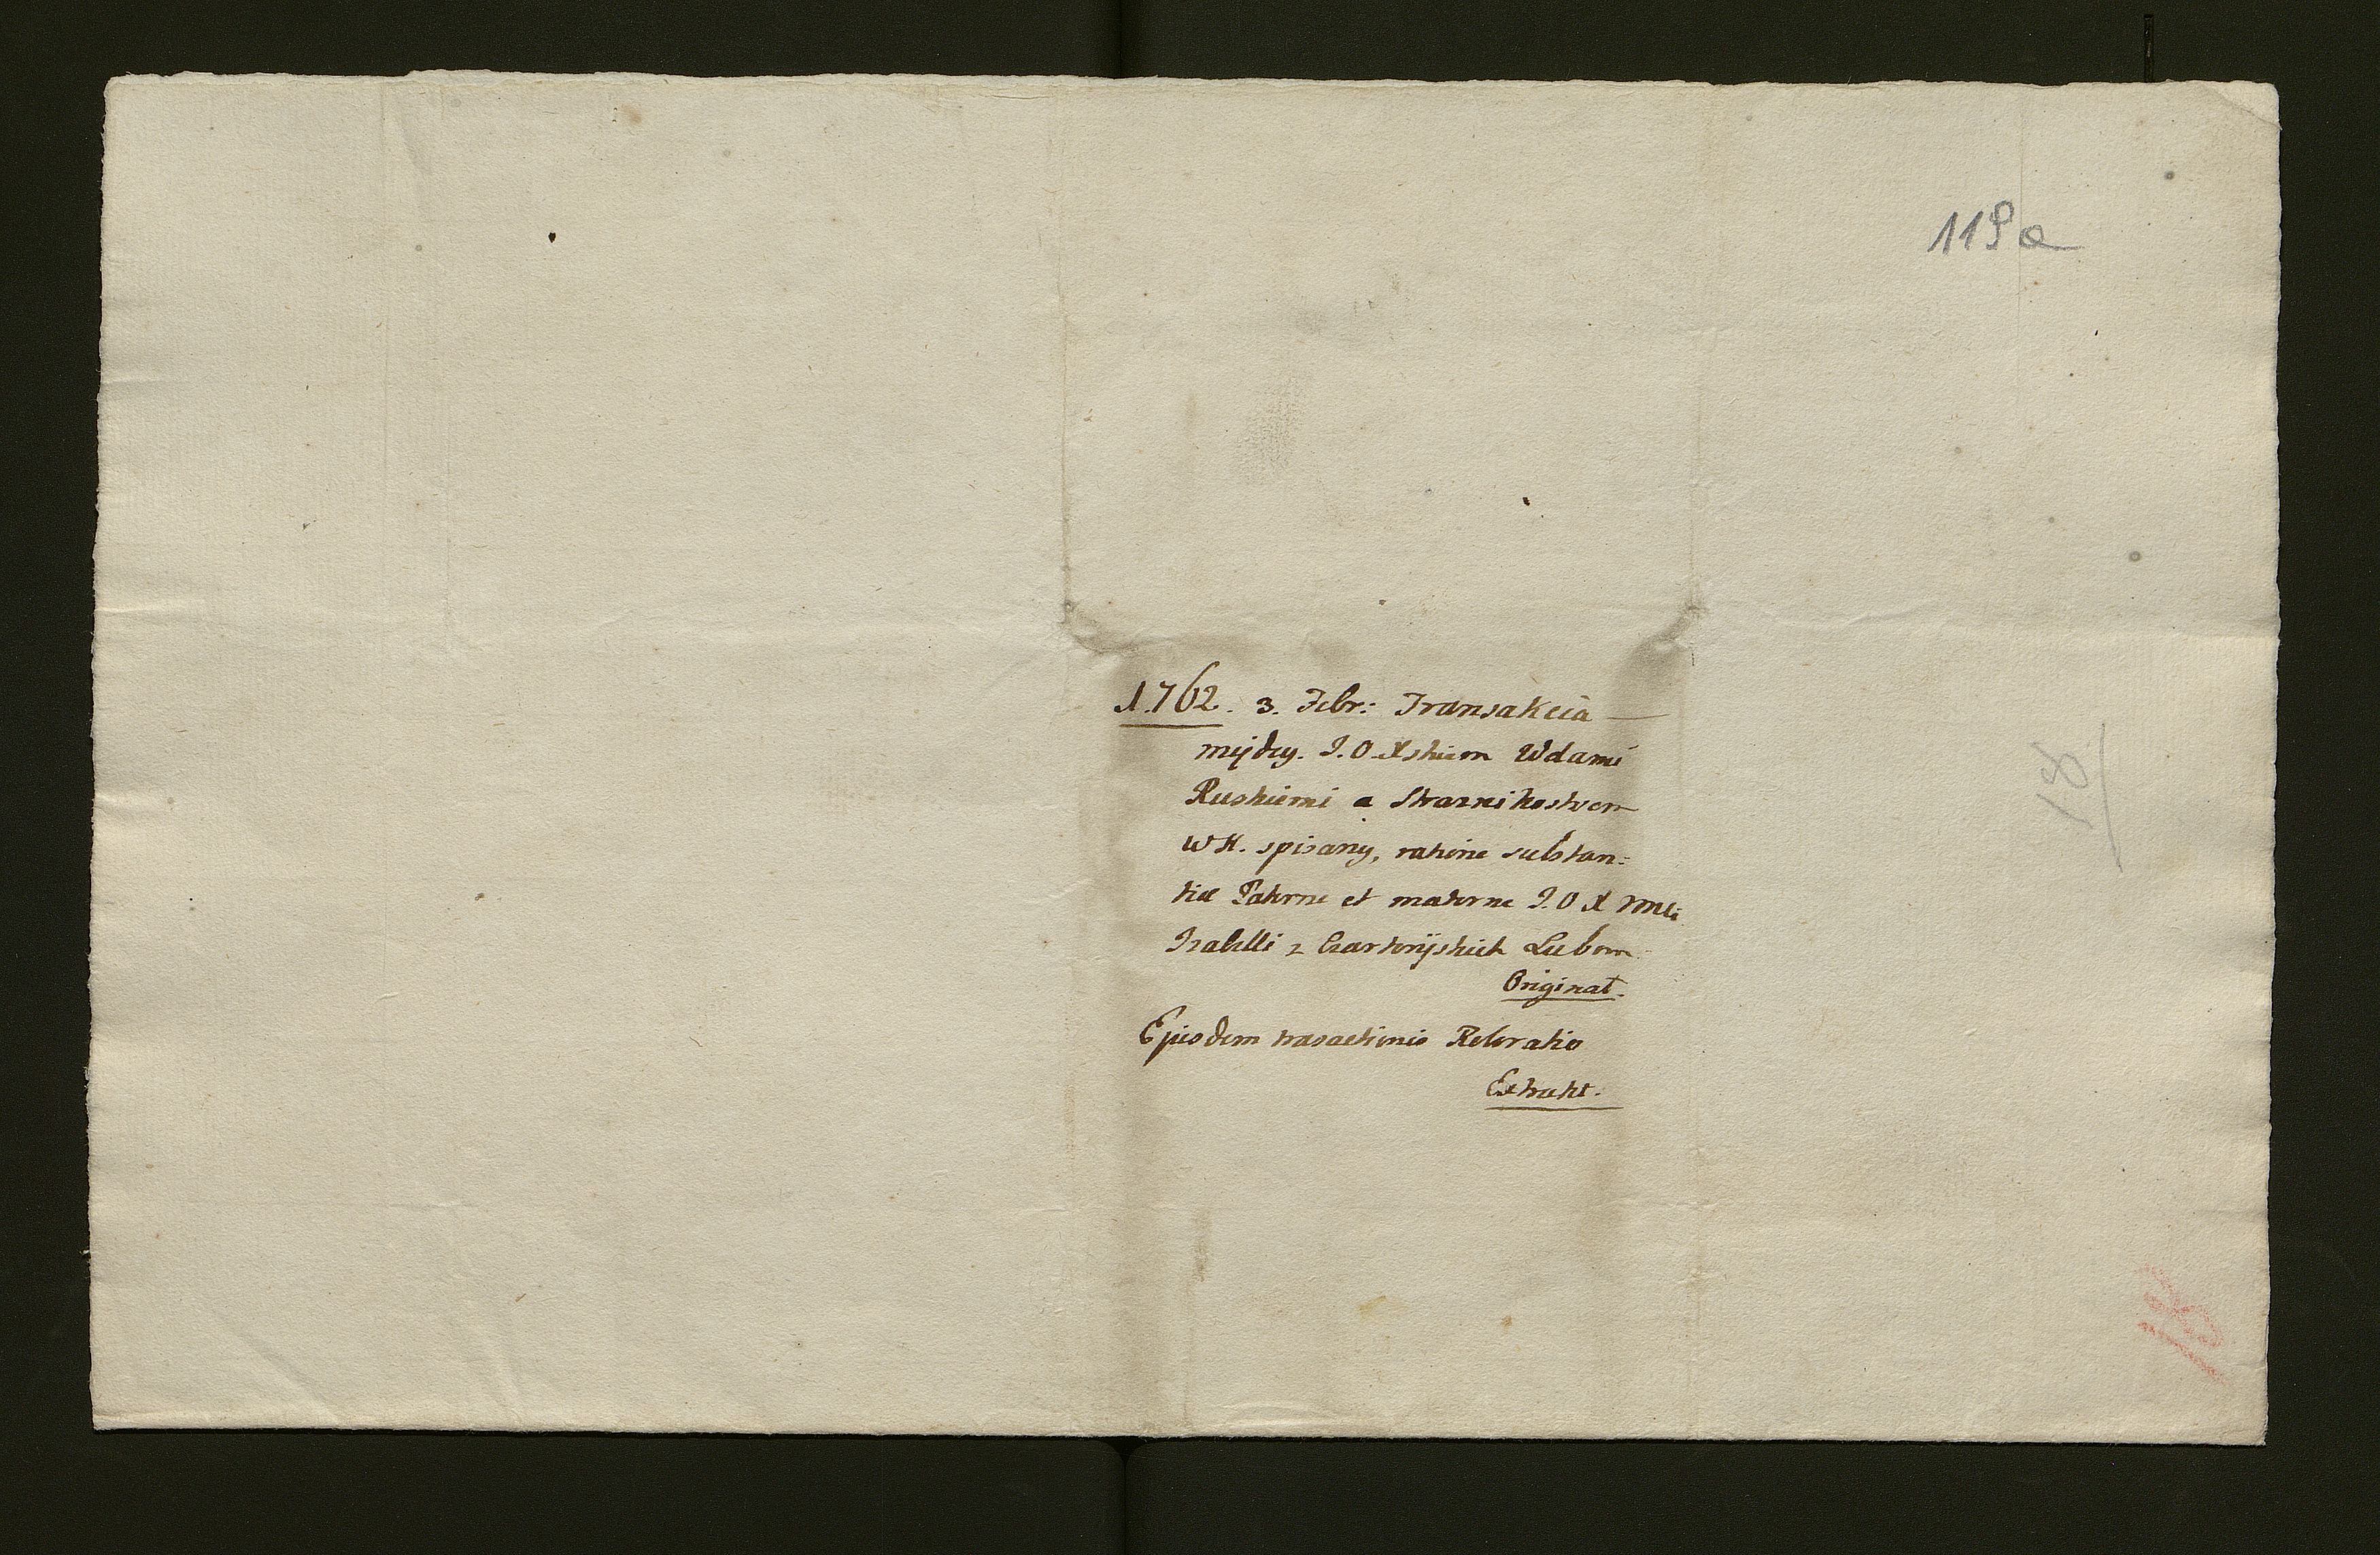 119a
1762. 3. Febr: Transakcia
między. J.O. Xstwem Wdami
Ruskiemi a Straznikostwem
WK. spisany, ratione substan:
tiæ Paterne et materne J.O X
Izabelli z Czartoryskich Lubom
Originał.
Ejusdem trasactionis Roboratio
Extrakt.
18